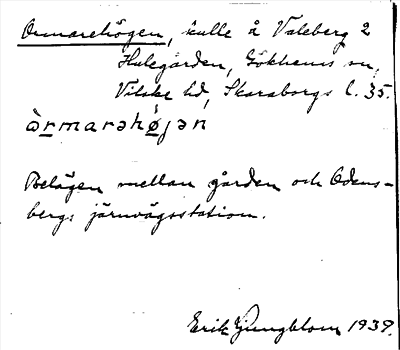 Ormarehögen, kulle å Valeberg 2
Hulegården, Gökhems sn,
Vilske hd, Skaraborgs l. 35.
òrmarəhö̀jən
Belägen mellan gården och Odens-
bergs järnvägsstation.
Erik Ljungblom 1939.